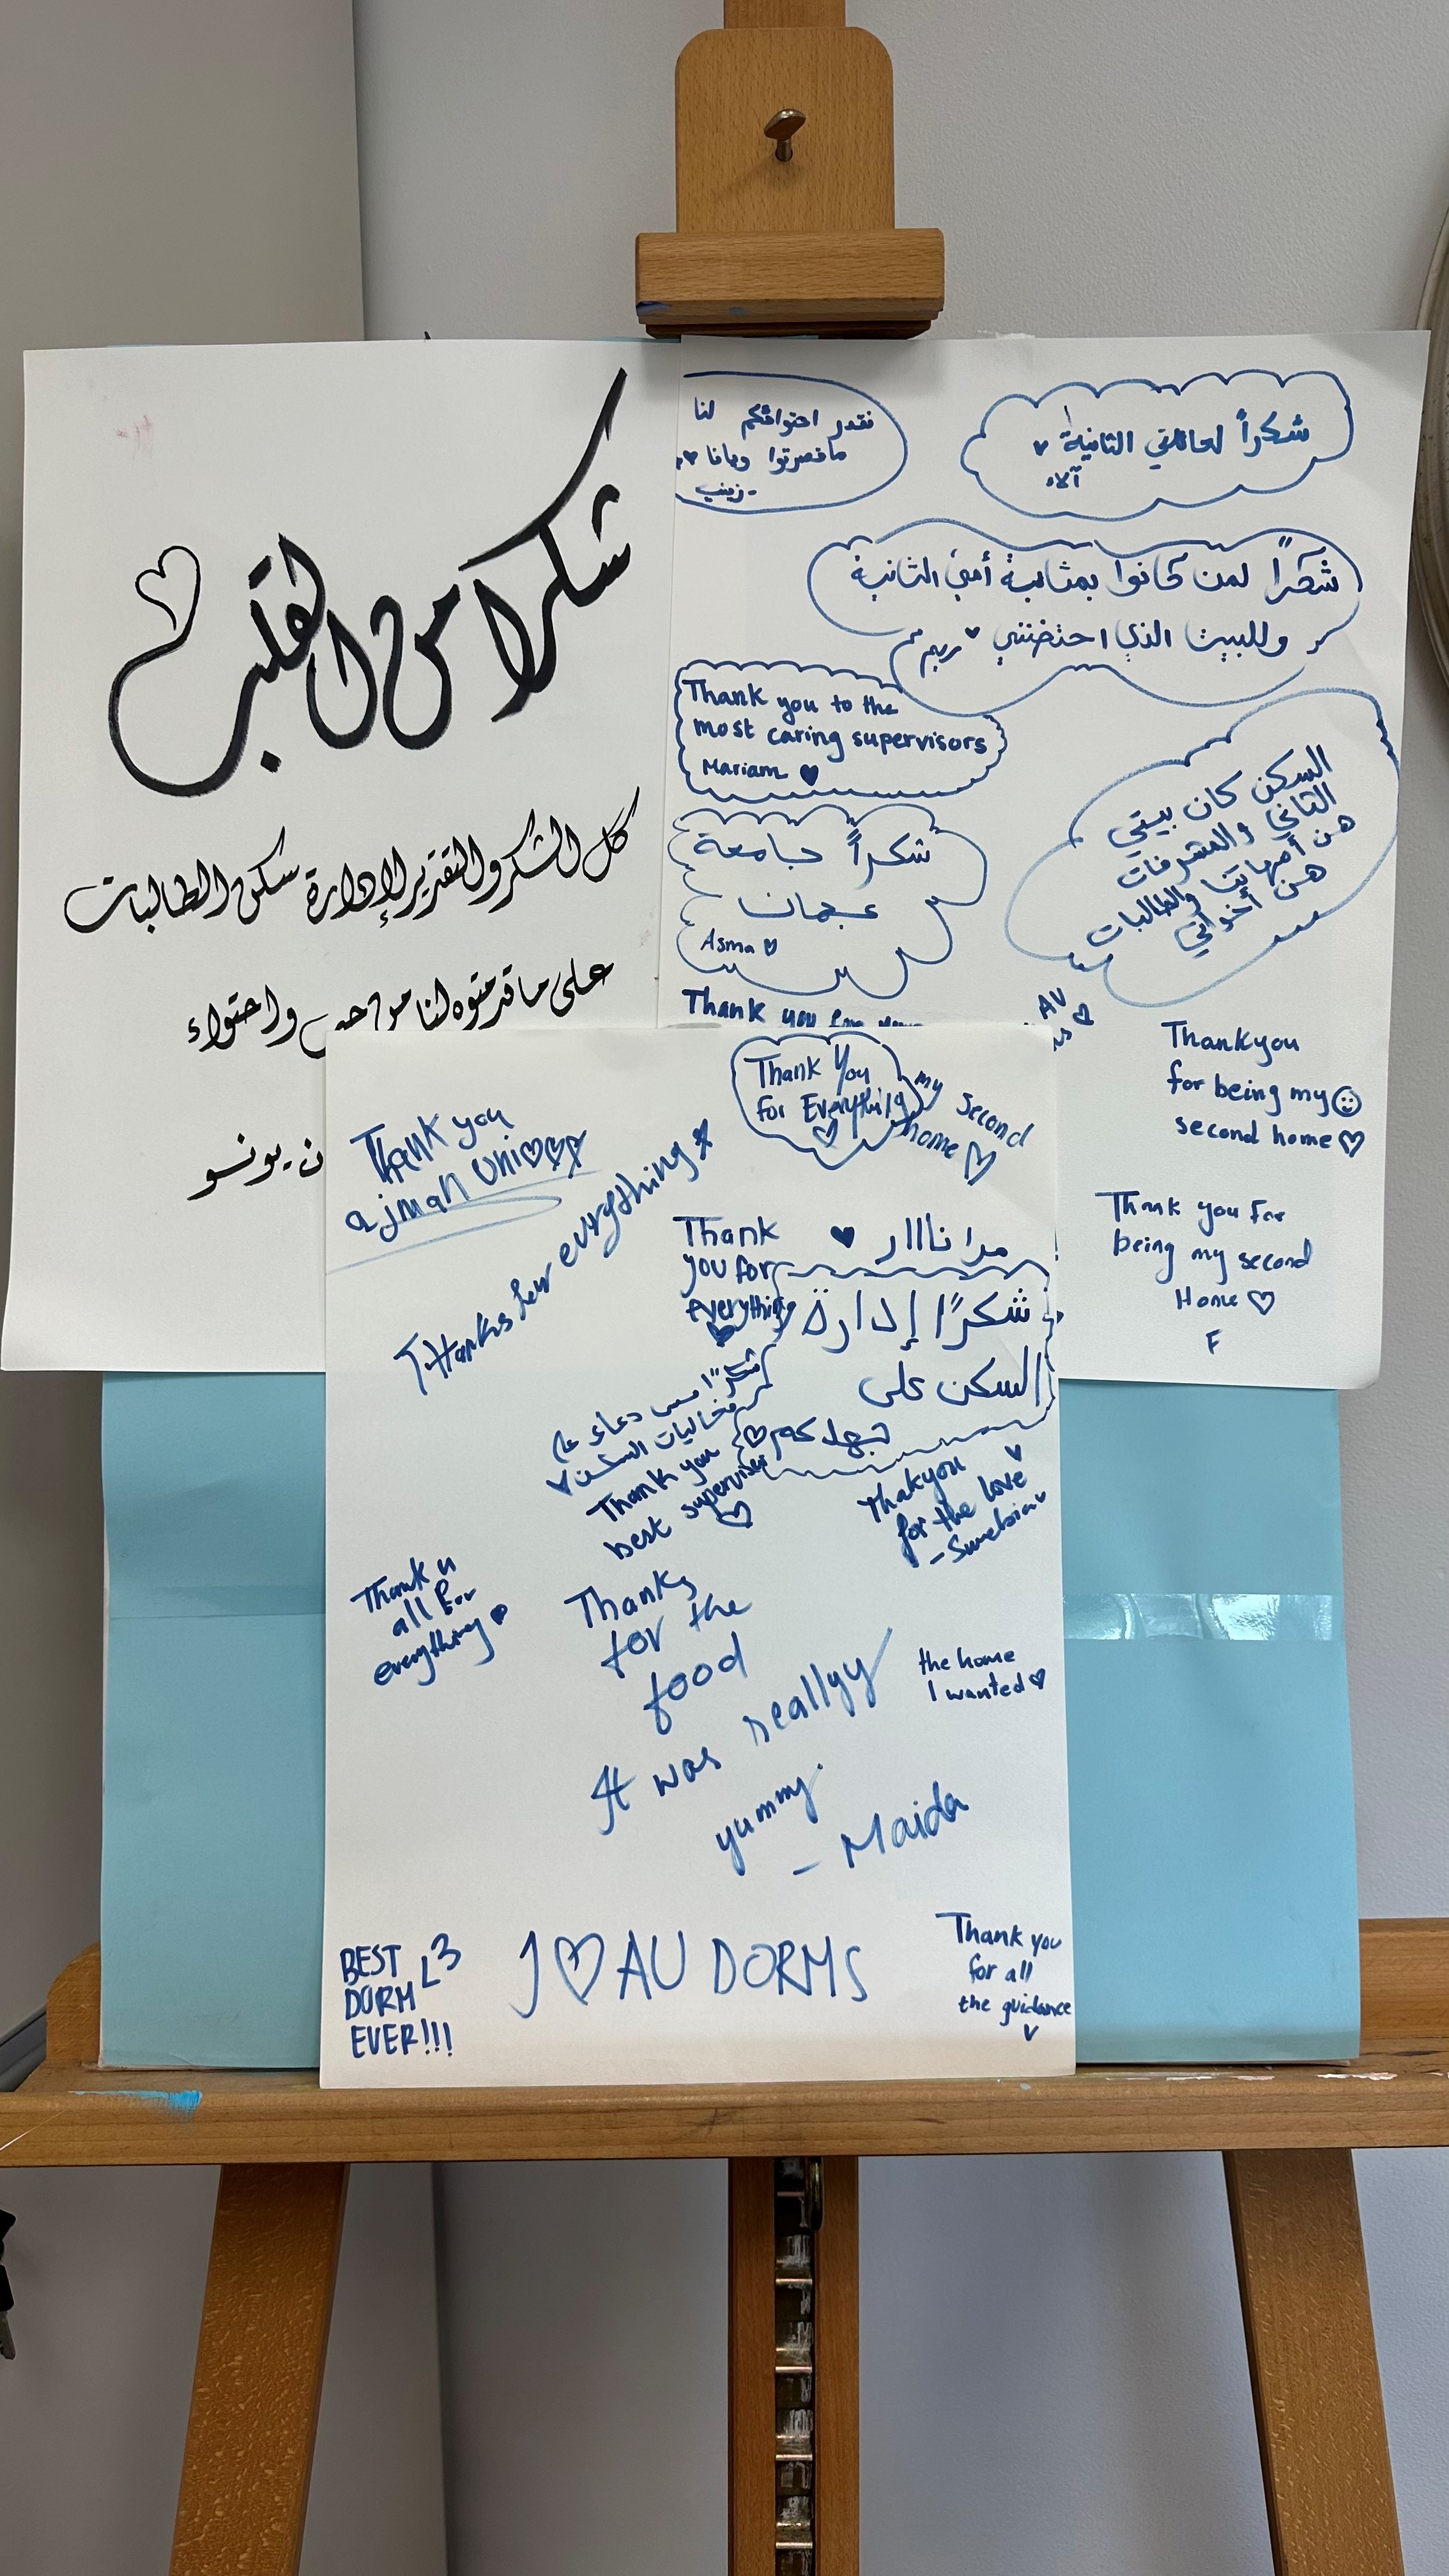 شكرا من القلب
كل الشكر والتقدير لإدارة سكن الطالبات
على ما قدمتوه لنا من حب واحتواء
نقدر احتوائكم لنا
ماقصرتوا ويانا
-زينب
شكراً لعائلتي الثانية
آلاء
شكرًا لمن كانوا بمثابة أمي الثانية
وللبيت الذي احتضنني
ريم
Thank you to the
most caring supervisors
Mariam
السكن كان بيتي
الثاني والمشرفات
هن أمهاتنا والطالبات
هن أخواتي
شكراً جامعة
عجمان
Asma
Thank you for your
AU
Thankyou
for being my
second home
Thank you for
being my second
Home
F
Thank You
for Everything
my second
home
Thank you
ajman uni
Thanks for evrything
Thank
you for
everything
شكرًا إدارة
السكن على
شكرًا مس دعاء على
فعاليات السكن
Thank you
best supervisor
Thakyou
for the love
Thank u
all for
everything
Thanks
for the
food
It was reallyy
yummy.
- Maida
the home
I wanted
BEST <3
DORM
EVER!!!
I ♡ AU DORMS
Thank you
for all
the guidance